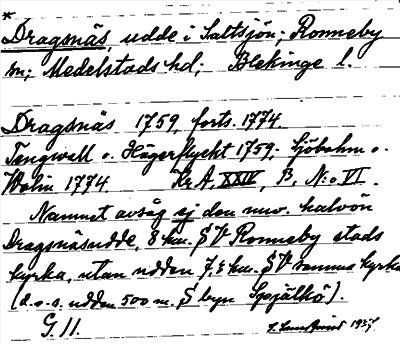 *
Dragsnäs, udde i Saltsjön; Ronneby
sn; Medelstads hd; Blekinge l.
Dragsnäs 1759, forts. 1774
Tengwall o. Hägerflyckt 1759; Sjöbohm o.
Wolin 1774 Kr. A. XXIV, B, N:o VI.
Namnet avsåg ej den nuv. halvön
Dragsnäsudde, 8 km. S V Ronneby stads
kyrka, utan udden 7,5 km. S V samma kyrka
(d.o.s. udden 500 m. S byn Spjälkö).
G. 11.
1927.